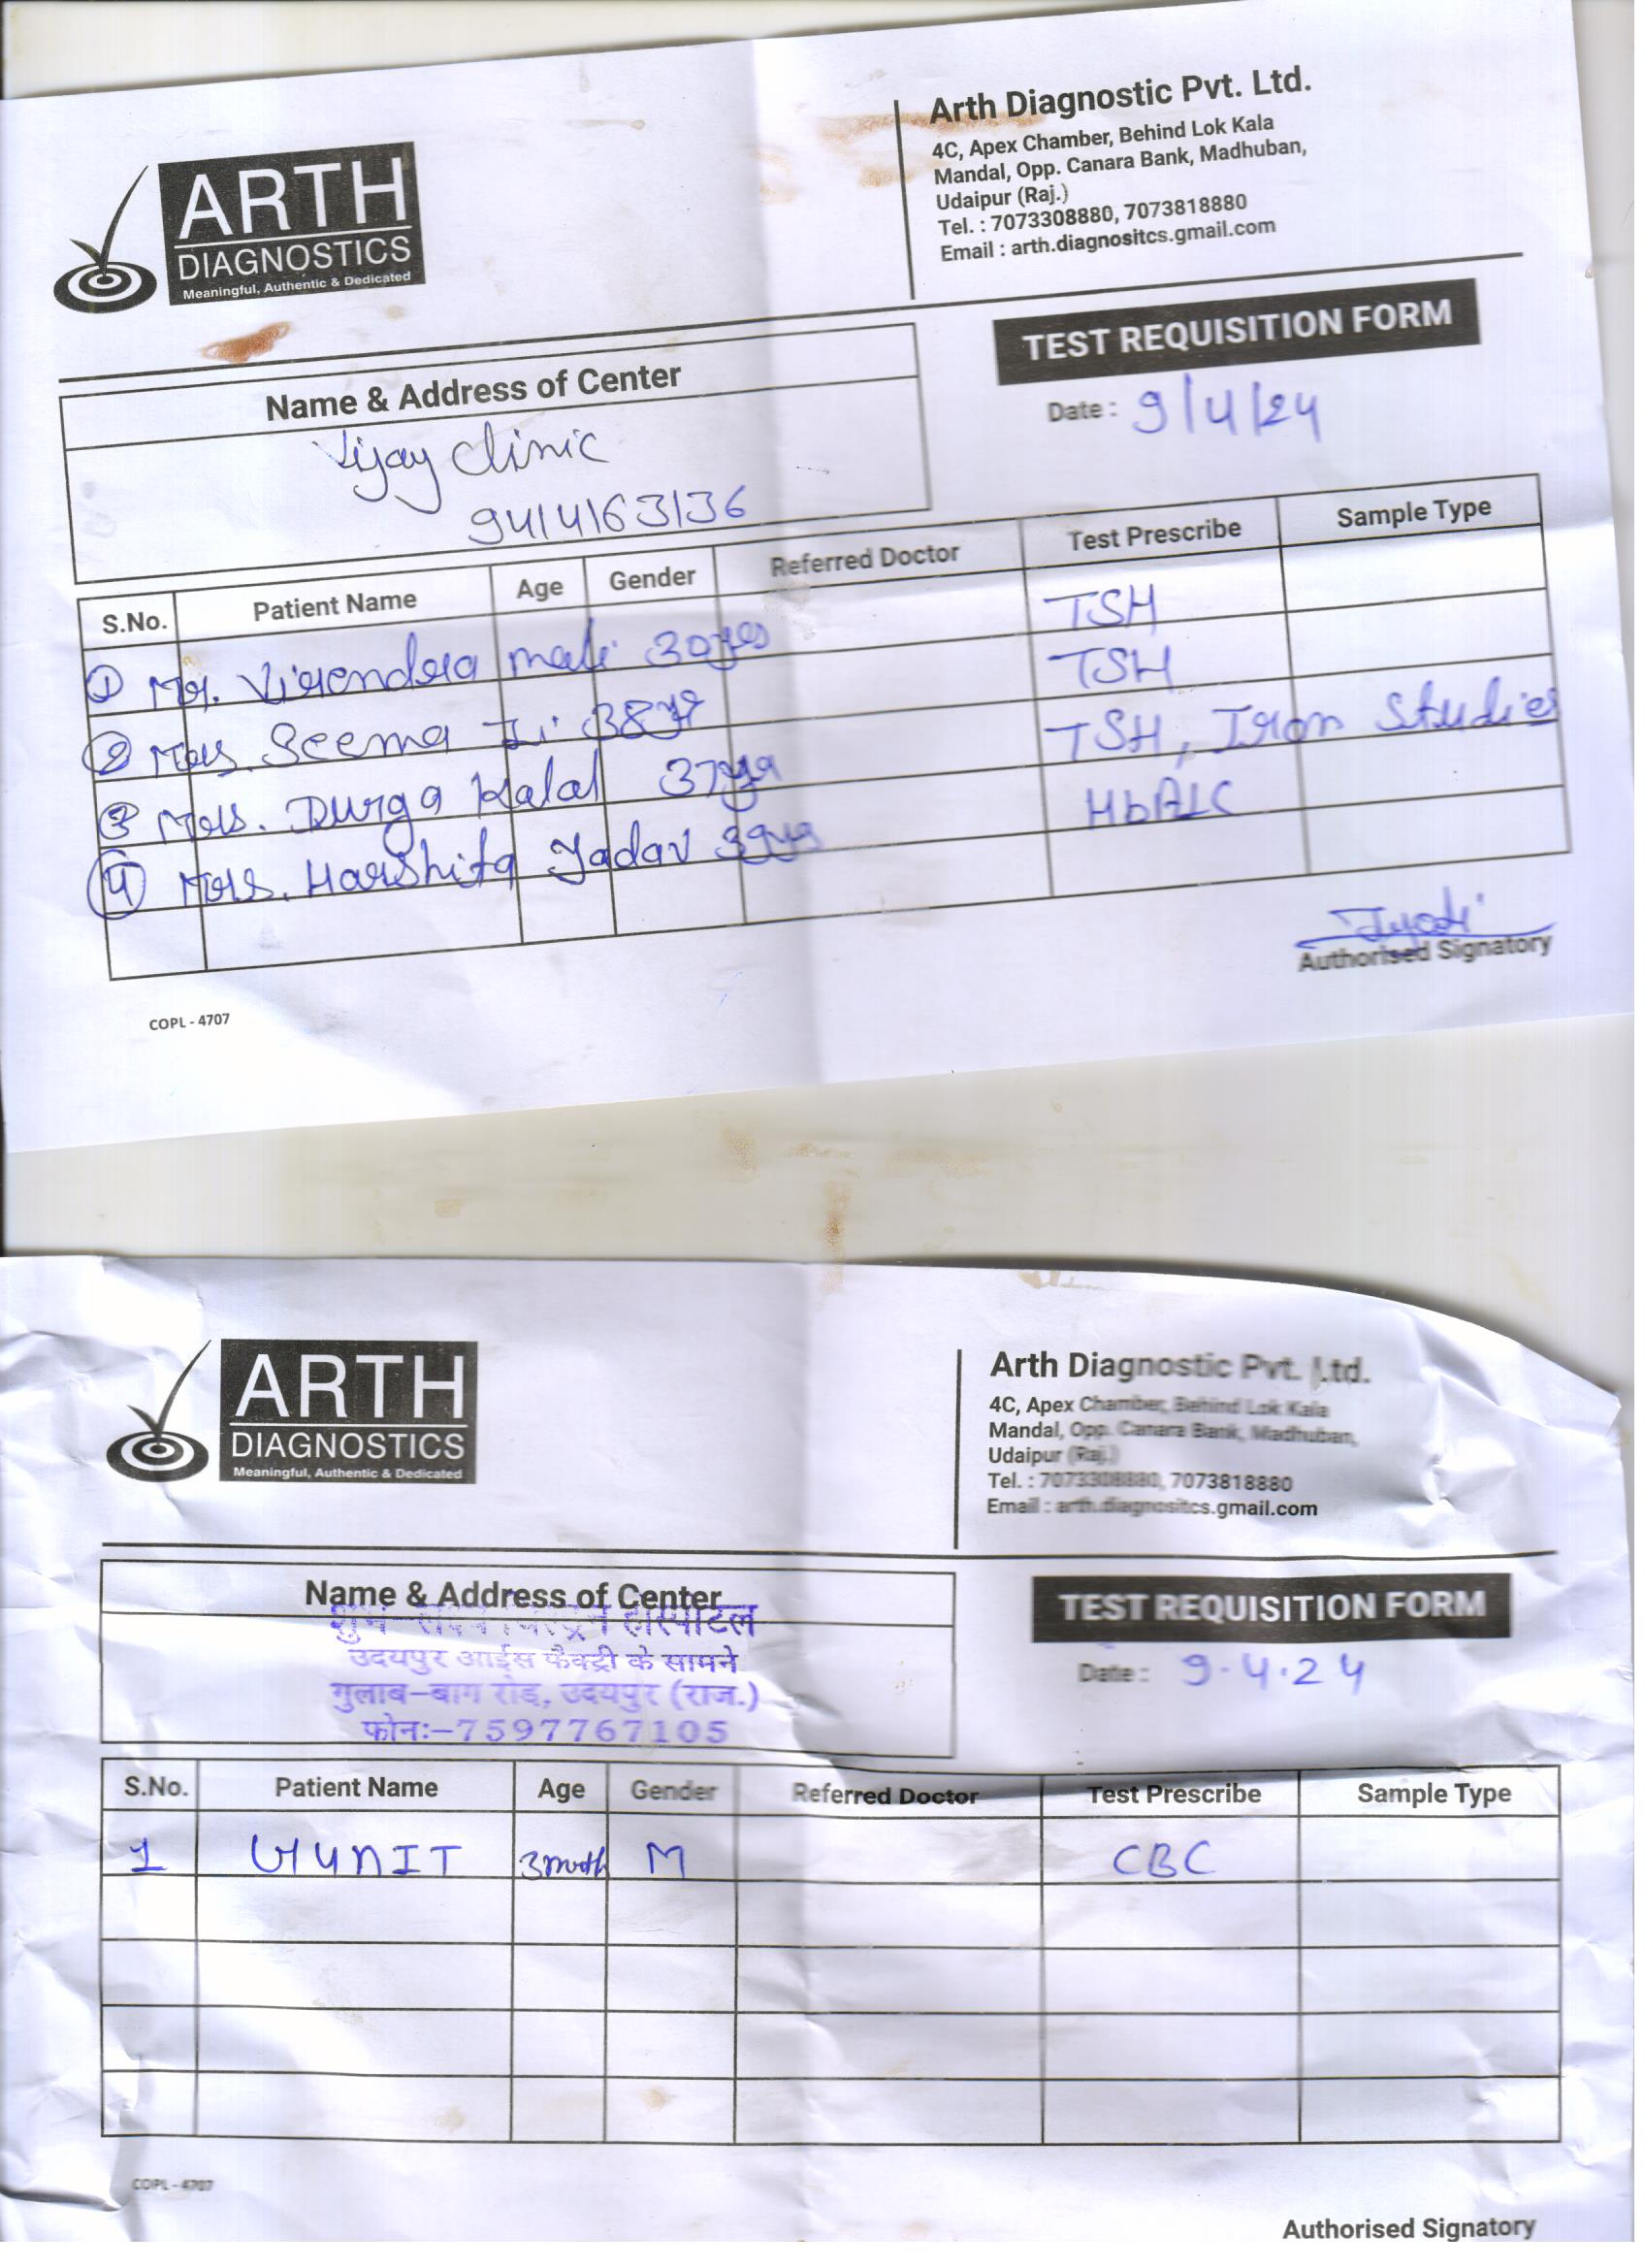 ARTH
DIAGNOSTICS
Meaningful, Authentic & Dedicated
Arth Diagnostic Pvt. Ltd.
4C, Apex Chamber, Behind Lok Kala
Mandal, Opp. Canara Bank, Madhuban,
Udaipur (Raj.)
Tel. : 7073308880, 7073818880
Email : arth.diagnositcs.gmail.com
TEST REQUISITION FORM
Date : 9/4/24
Name & Address of Center
Vijay clinic
9414163136
S.No. Patient Name Age Gender Referred Doctor Test Prescribe Sample Type
1 Mr. Virendra mali 30yrs TSH
2 Mrs. Seema Ji 38yr TSH
3 Mrs. Durga Kalal 37yrs TSH, Iron Studies
4 Mrs. Harshita Yadav 39yrs HbA1C
Jyoti
Authorised Signatory
COPL - 4707
ARTH
DIAGNOSTICS
Meaningful, Authentic & Dedicated
Arth Diagnostic Pvt. Ltd.
4C, Apex Chamber, Behind Lok Kala
Mandal, Opp. Canara Bank, Madhuban,
Udaipur (Raj.)
Tel. : 7073308880, 7073818880
Email : arth.diagnositcs.gmail.com
TEST REQUISITION FORM
Date : 9.4.24
Name & Address of Center
हॉस्पीटल
उदयपुर आईस फैक्ट्री के सामने
गुलाब-बाग रोड, उदयपुर (राज.)
फोनः-7597767105
S.No. Patient Name Age Gender Referred Doctor Test Prescribe Sample Type
1 3 month M CBC
COPL - 4707
Authorised Signatory